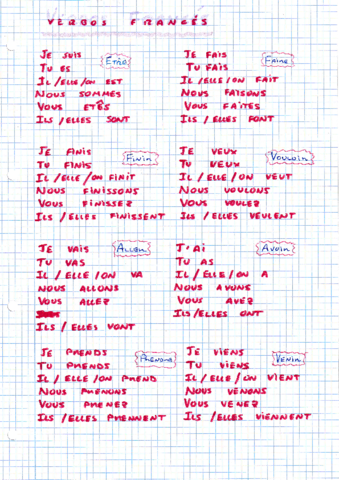 VERBOS FRANCÉS
ÊTRE
JE SUIS
TU ES
IL/ELLE/ON EST
NOUS SOMMES
VOUS ETÊS
ILS/ELLES SONT
FAIRE
JE FAIS
TU FAIS
IL/ELLE/ON FAIT
NOUS FAISONS
VOUS FAITES
ILS/ELLES FONT
FINIR
JE FINIS
TU FINIS
IL/ELLE/ON FINIT
NOUS FINISSONS
VOUS FINISSEZ
ILS/ELLES FINISSENT
VOULOIR
JE VEUX
TU VEUX
IL/ELLE/ON VEUT
NOUS VOULONS
VOUS VOULEZ
ILS/ELLES VEULENT
ALLER
JE VAIS
TU VAS
IL/ELLE/ON VA
NOUS ALLONS
VOUS ALLEZ
ILS/ELLES VONT
AVOIR
J'AI
TU AS
IL/ELLE/ON A
NOUS AVONS
VOUS AVEZ
ILS/ELLES ONT
JE PRENDS
TU PRENDS
IL/ELLE/ON PREND
NOUS PRENONS
VOUS PRENEZ
ILS/ELLES PRENNENT
VENIR
JE VIENS
TU VIENS
IL/ELLE/ON VIENT
NOUS VENONS
VOUS VENEZ
ILS/ELLES VIENNENT